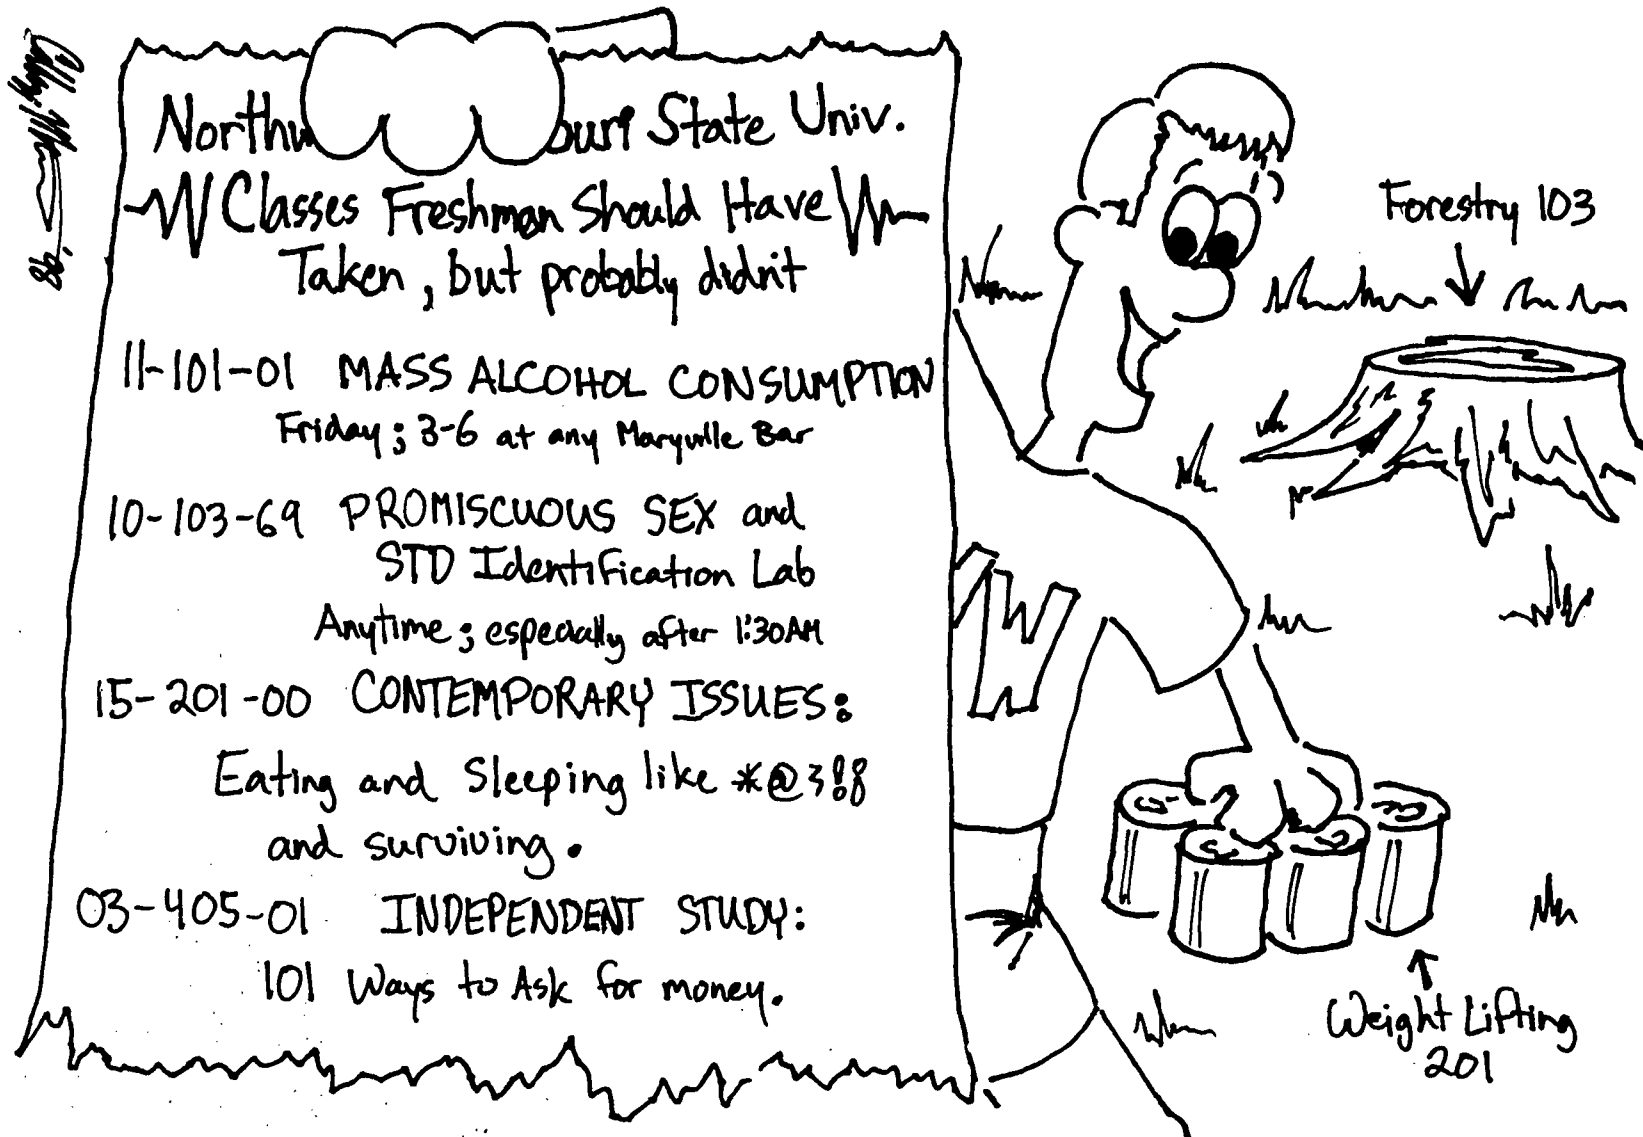 Northw ouri State Univ.
Classes Freshman Should Have
Taken, but probably didn't
11-101-01 MASS ALCOHOL CONSUMPTION
Friday; 3-6 at any Maryville Bar
10-103-69 PROMISCUOUS SEX and
STD Identification Lab
Anytime; especially after 1:30AM
15-201-00 CONTEMPORARY ISSUES:
Eating and Sleeping like *@3!8
and surviving.
03-405-01 INDEPENDENT STUDY:
101 Ways to Ask for money.
Forestry 103
NW
Weight Lifting
201
'98